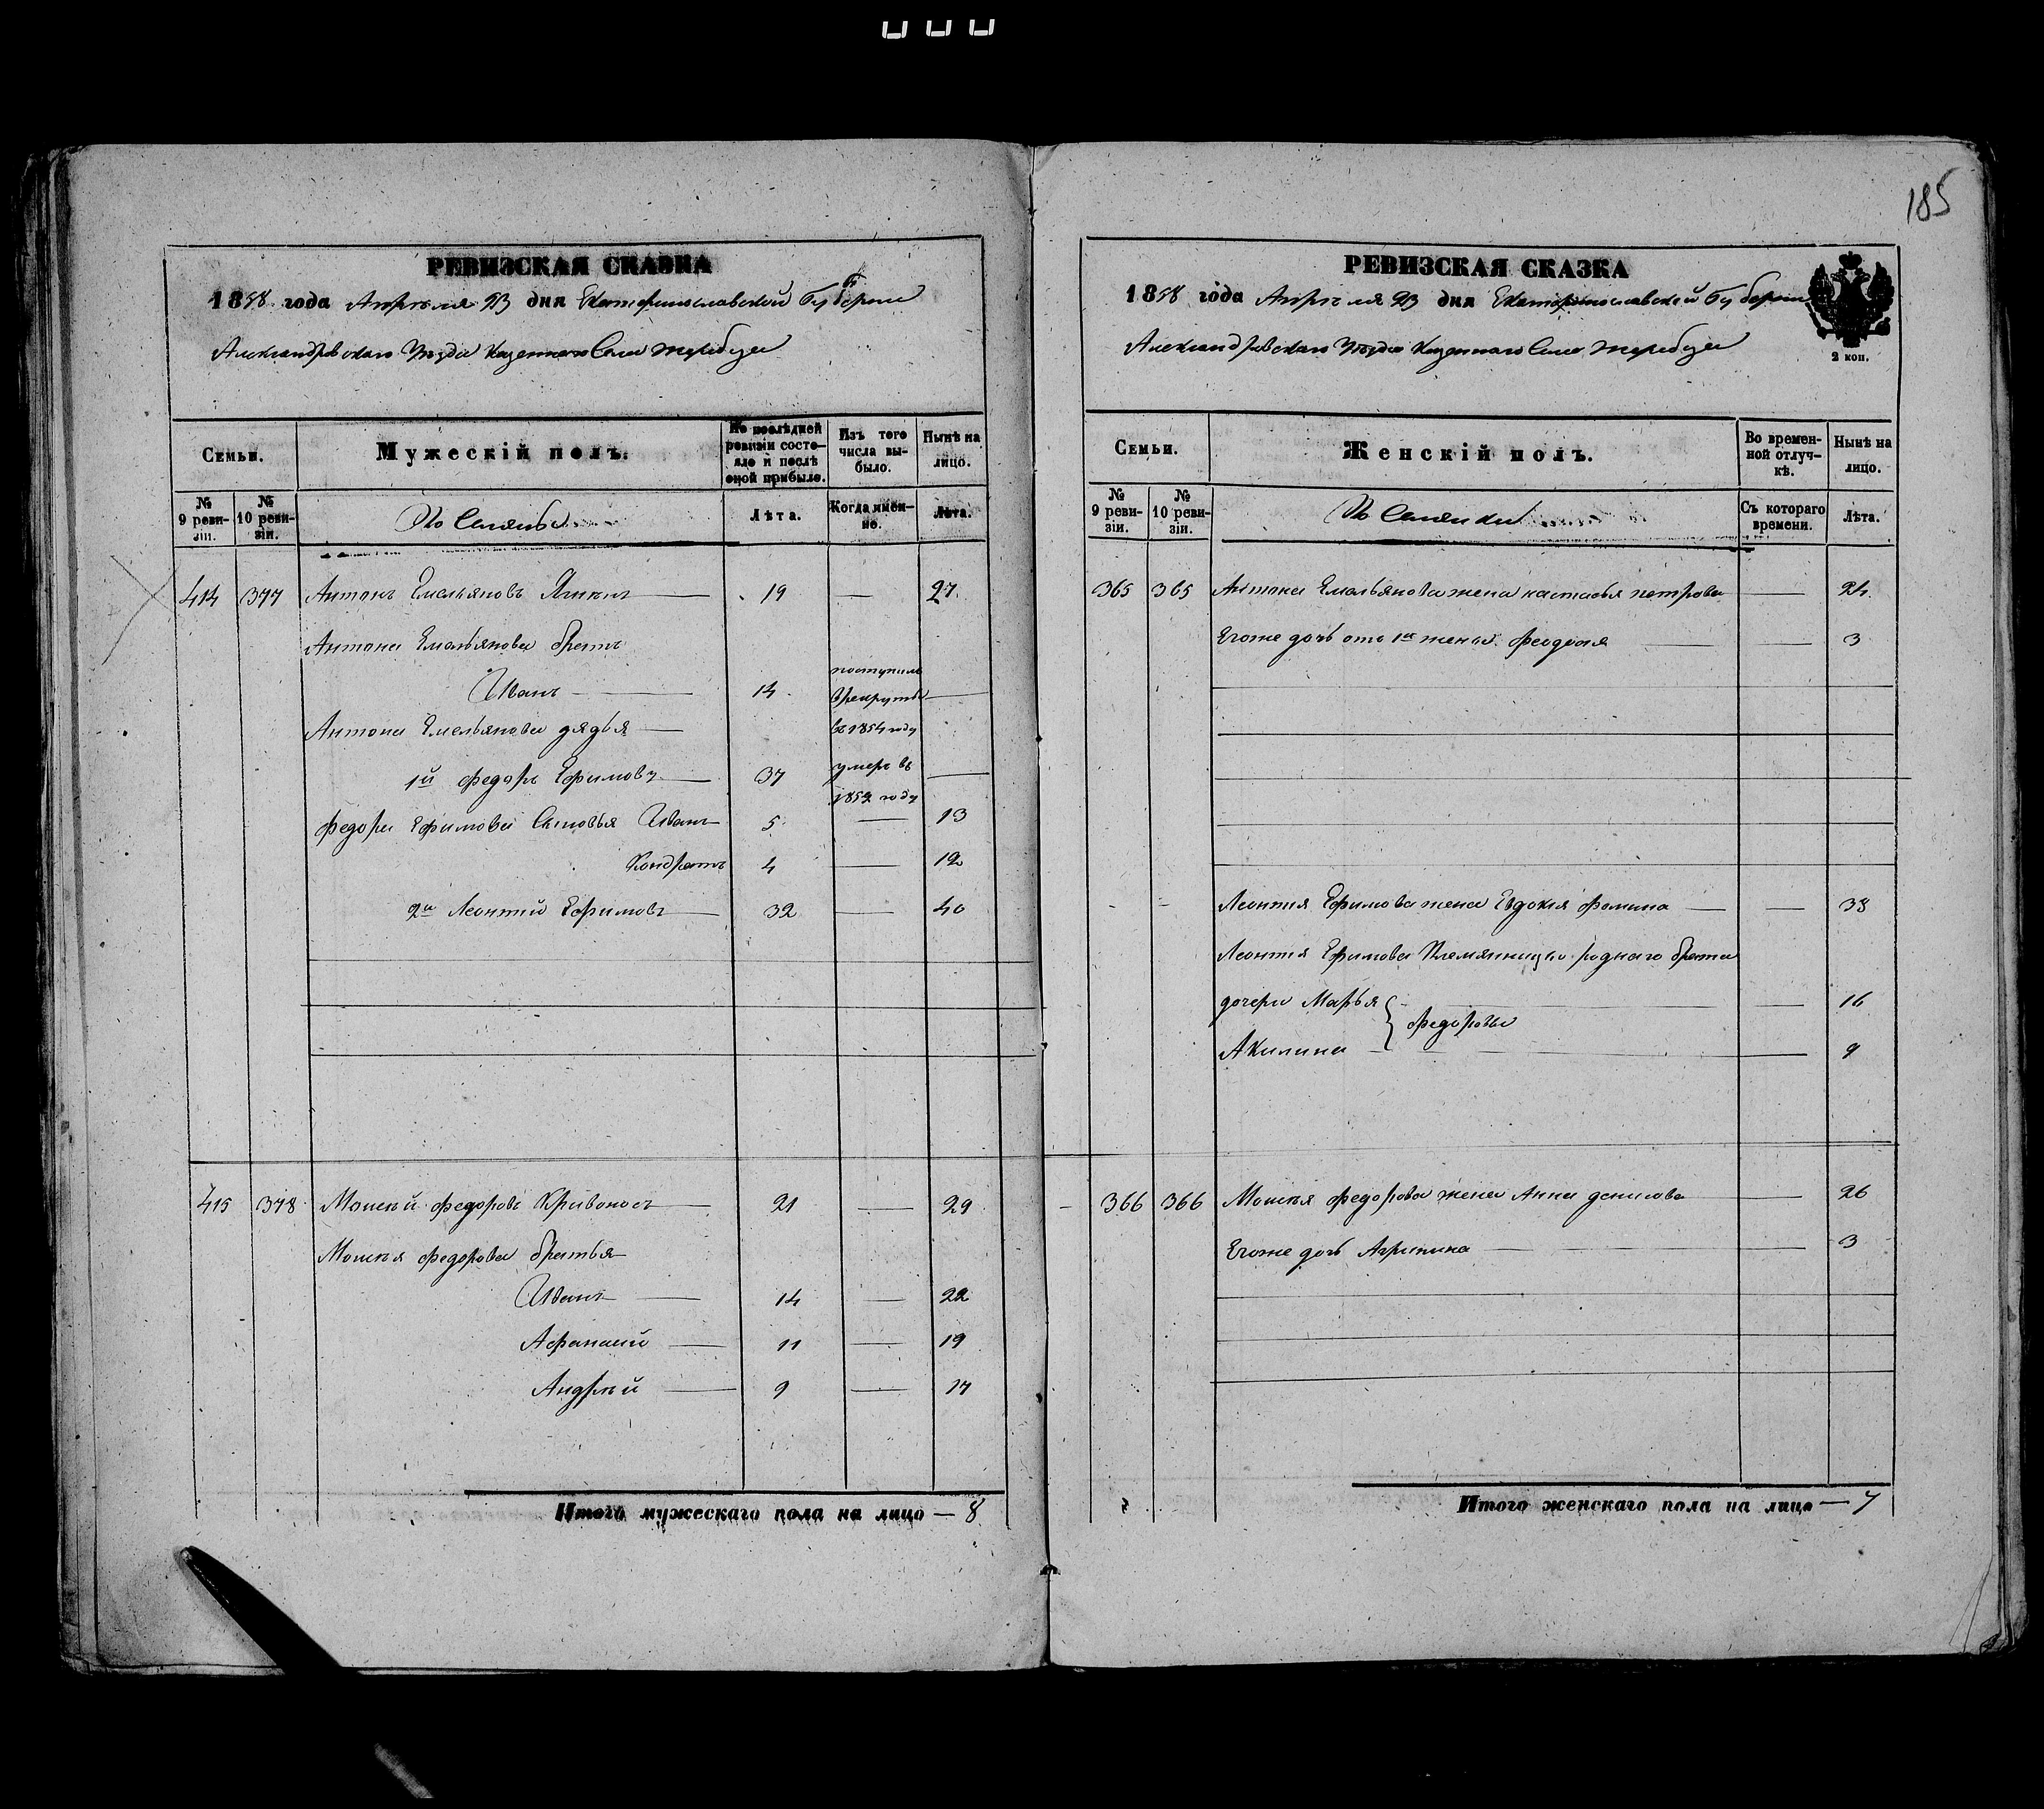 185
РЕВИЗСКАЯ СКАЗКА
1858 года Апреля 23 дня Екатеринославской Губернии
Александровскаго Уезда Казеннаго Села Жеребца
Семьи.
Мужескій полъ.
По послѣдней ревизіи состояло и послѣ оной прибыло.
Изъ того числа выбыло.
Нынѣ на лицо.
№ 9 ревизіи.
№ 10 ревизіи.
Лѣта.
Когда именно.
Лѣта.
414 377 Антонъ Емельяновъ 19 — 27
Антона Емельянова братъ
Иванъ — 14 поступилъ в рекруты в 1854 году —
Антона Емельянова дядья —
1й Федоръ Ефимовъ — 37 умеръ въ 1852 году —
Федора Ефимова Сыновья Иванъ 5 — 13
Кондратъ 4 — 12
2й Леонтий Ефимовъ — 32 — 40
415 378 Моисѣй Федоровъ Кривоносъ — 21 — 29
Моисѣя Федорова братья —
Иванъ — 14 — 22
Афанасий — 11 — 19
Андрѣй — 9 — 17
Итого мужескаго пола на лицо — 8
РЕВИЗСКАЯ СКАЗКА
1858 года Апреля 23 дня Екатеринославской Губернии
Александровскаго Уезда Казеннаго Села Жеребца
2 коп.
Семьи.
Женскій полъ.
Во временной отлучкѣ.
Нынѣ на лицо.
№ 9 ревизіи.
№ 10 ревизіи.
Съ котораго времени.
Лѣта.
365 365 Антона Емельянова жена настасья петрова — 24
Егоже дочь отъ 1й жены Феодосия — — 3
Леонтия Ефимова жена Евдокия фомина — — 38
Леонтия Ефимова Племянницы роднаго брата
дочери Марья — — 16
Федоровы
Акилина — — 9
366 366 Моисѣя Федорова жена Анна денисова — 26
Егоже дочь Агрипина — — 3
Итого женскаго пола на лицо — 7